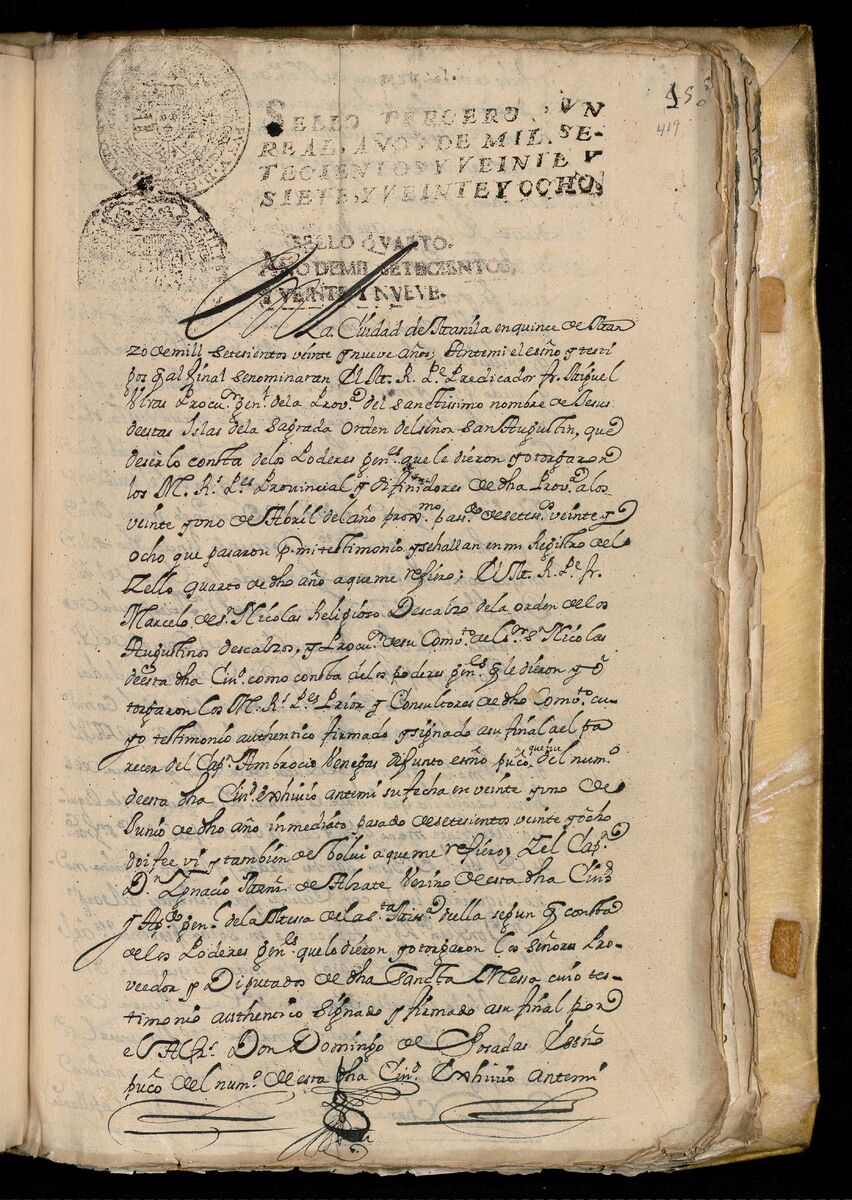 150
419
SELLO TERCERO, UN
REAL, AÑOS DE MIL, SE-
TECIENTOS Y VEINTE Y
SIETE, Y VEINTE Y OCHO.
SELLO QVARTO,
AÑO DE MIL SETECIENTOS,
Y VEINTE Y NVEVE.
la Ciudad de Manila en quince de Mar
zo de mill setesientos veinte y nueve años; Antemi el essno y testi
gos q al final se nominaran El M. R. Pe Predicador fr. Miguel
Vivas Procur gent dela Prova del Sanctissimo nombre de Jesus
deestas Islas dela Sagrada orden del señor San Augustin, que
deserlo consta delos Poderes genes que le dieron y otorgaron
los M. Rs Pes Provincial y difinidores de dha Prova a los
veinte y uno de Abril del año proxmo passdo de setess veinte y
ocho que pasaron p. mi testimonio y se hallan en mi Registro del
Zello quarto de dho año a que me refiero; El M. R. Pe fr.
Marcelo de Sn Nicolas Religioso Descalzo dela orden de los
Augustinos descalzos, y Procur desu Comvto de Sn Nicolas
de esta dha Ciud como consta delos poderes genes q le dieron y o
torgaron los M. Rs Pes Prior y Consultores de dho Comvto cu-
yo testimonio authentico firmado y signado a su final a el pa
recer del Capn Ambrocio Venegas difunto essno puco que fue del numo
de esta dha Ciud exhivio antemi su fecha en veinte y uno de
Junio de dho año inmediato pasado de setesientos veinte y ocho
doi fee vi y tambien de bolvi a que me refiero; Y el Capn
Dn Ygnacio Marnz de Alzate Vezino de esta dha Ciud
y Apdo genl dela Messa de la Sta Missa della segun q consta
de los Poderes genes que lo dieron y otorgaron los señores Pro-
veedor y Diputados de dha Sancta Messa cuio tes-
timonio authentico signado y firmado a su final por
el Alfs Don Domingo de Posadas Essno
puco del numo de esta dha Ciud Exhivio antemi